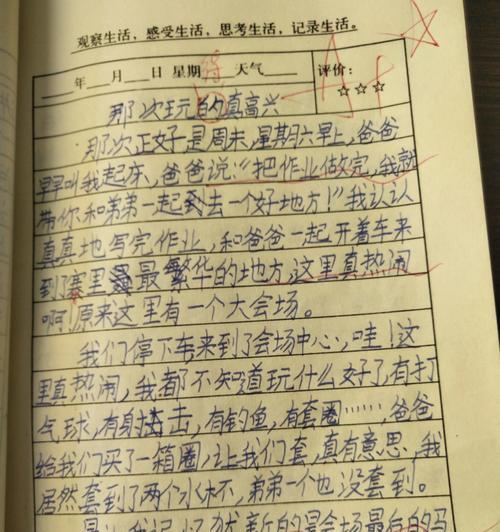 观察生活，感受生活，思考生活，记录生活。
年 月 日 星期 天气 评价：
☆☆☆
那次玩的真高兴
那次正好是周末，星期六早上，爸爸
早早叫我起床，爸爸说：“把作业做完，我就
带你和弟弟一起去一个好地方！”我认认
真真地写完作业，和爸爸一起开着车来
到了寨里最繁华的地方，这里真热闹
啊！原来这里有一个大会场。
我们停下车来到了会场中心，哇！这
里真热闹，我都不知道玩什么好了，有打
气球，有射击，有钓鱼，有套圈……，爸爸
给我们买了一箱圈，让我们套，真有意思，我
居然套到了两个水杯，弟弟一个也没套到。